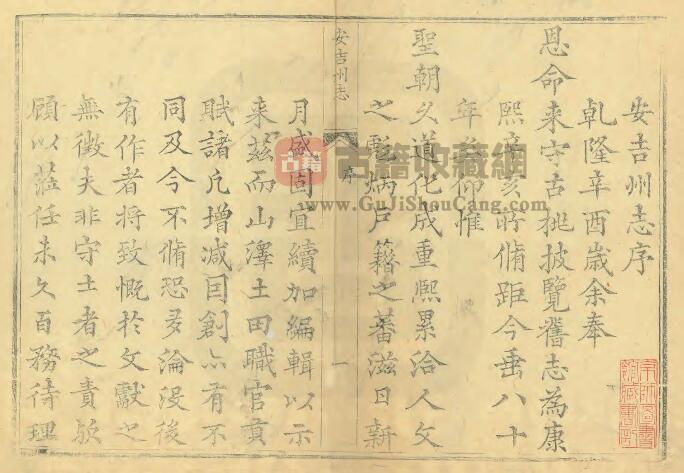 安吉州志序
乹隆辛酉歲余奉
恩命来守古桃披覽舊志為康
熙辛亥所脩距今垂八十
年仰惟
聖朝久道化成重熙累洽人文
之彪炳戶籍之蕃滋日新
安吉州志
序
一
月盛固宜續加編輯以示
来茲而山澤土田職官貢
賦諸凡增減因創亦有不
同及今不脩恐多淪没後
有作者将致慨於文獻之
無徵夫非守土者之責欤
顧以蒞任未久百務待理
古籍
古籍收藏网
www.GuJiShouCang.com